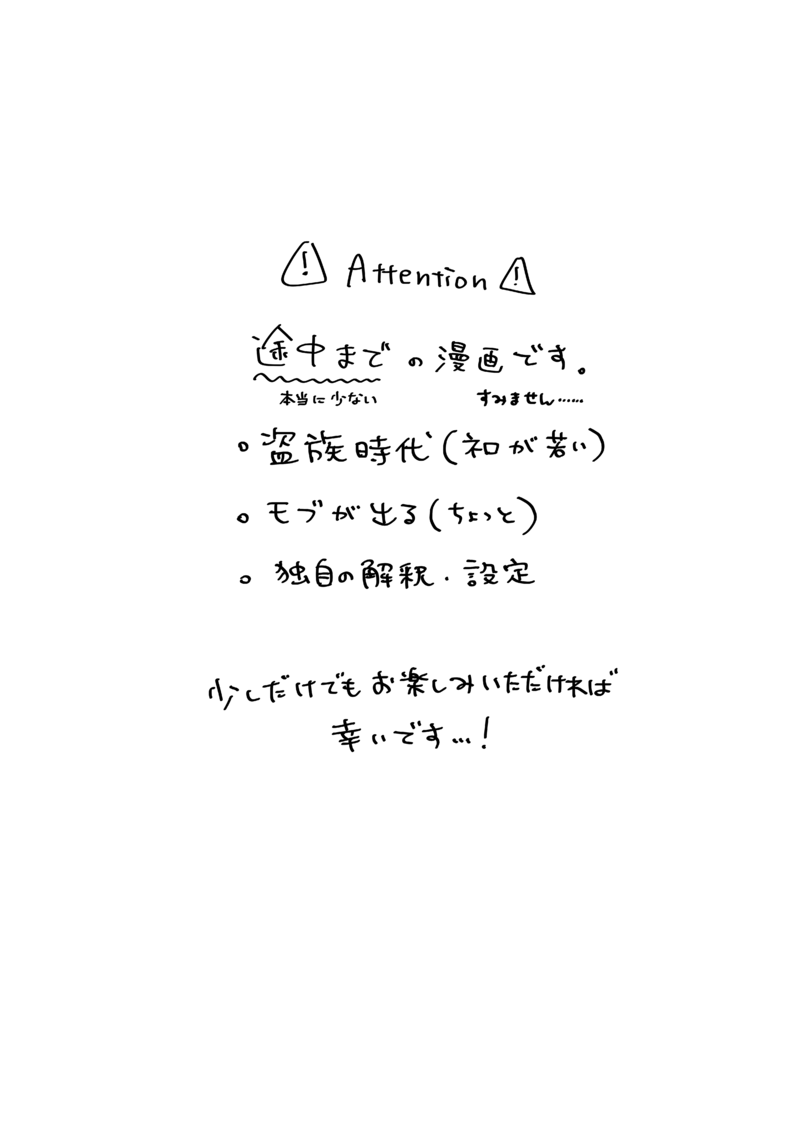 ⚠ Attention ⚠
途中までの漫画です。
本当に少ない すみません……
。盗族時代(初が若い)
。モブが出る(ちょっと)
。独自の解釈・設定
少しだけでもお楽しみいただければ
幸いです…!